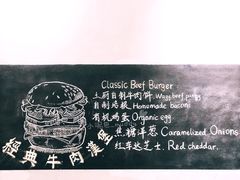 Classic Beef Burger
自制牛肉饼 Wagu beef patty
自制培根 Homemade bacons
有机鸡蛋 Organic egg
焦糖洋葱 Caramelized Onions
红车达芝士 Red cheddar.
經典牛肉漢堡